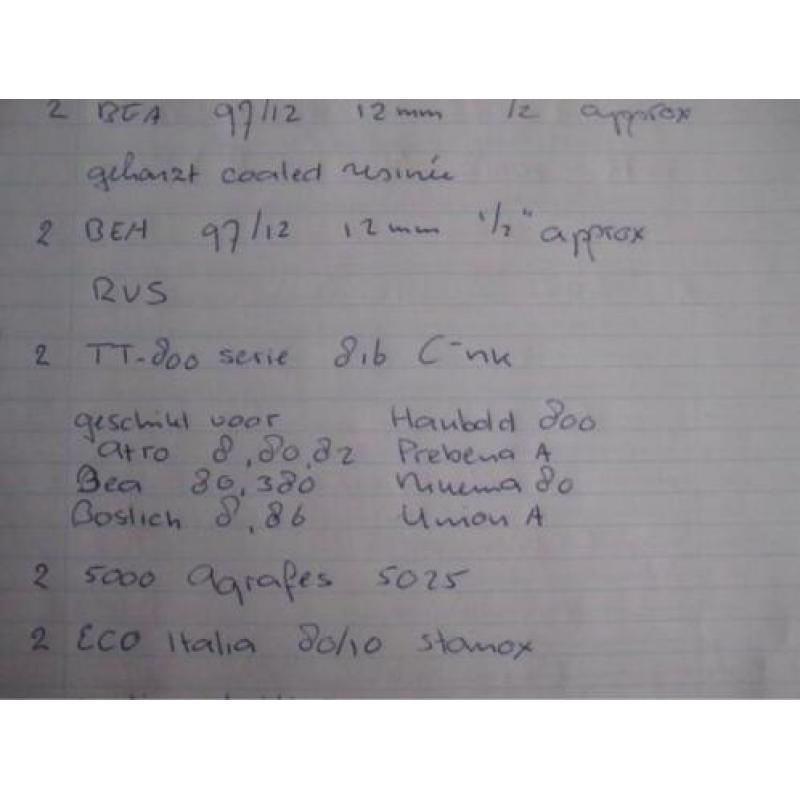 2 BEA 97/12 12mm 1/2 approx
geharzt coated resinée
2 BEA 97/12 12mm 1/2" approx
RVS
2 TT-800 serie 8,6 C-nk
geschikt voor Haubold 800
atro 8,80,82 Prebena A
Bea 80,380 80
Bostich 8,86 Union A
2 5000 Agrafes 5025
2 ECO Italia 80/10 stanox